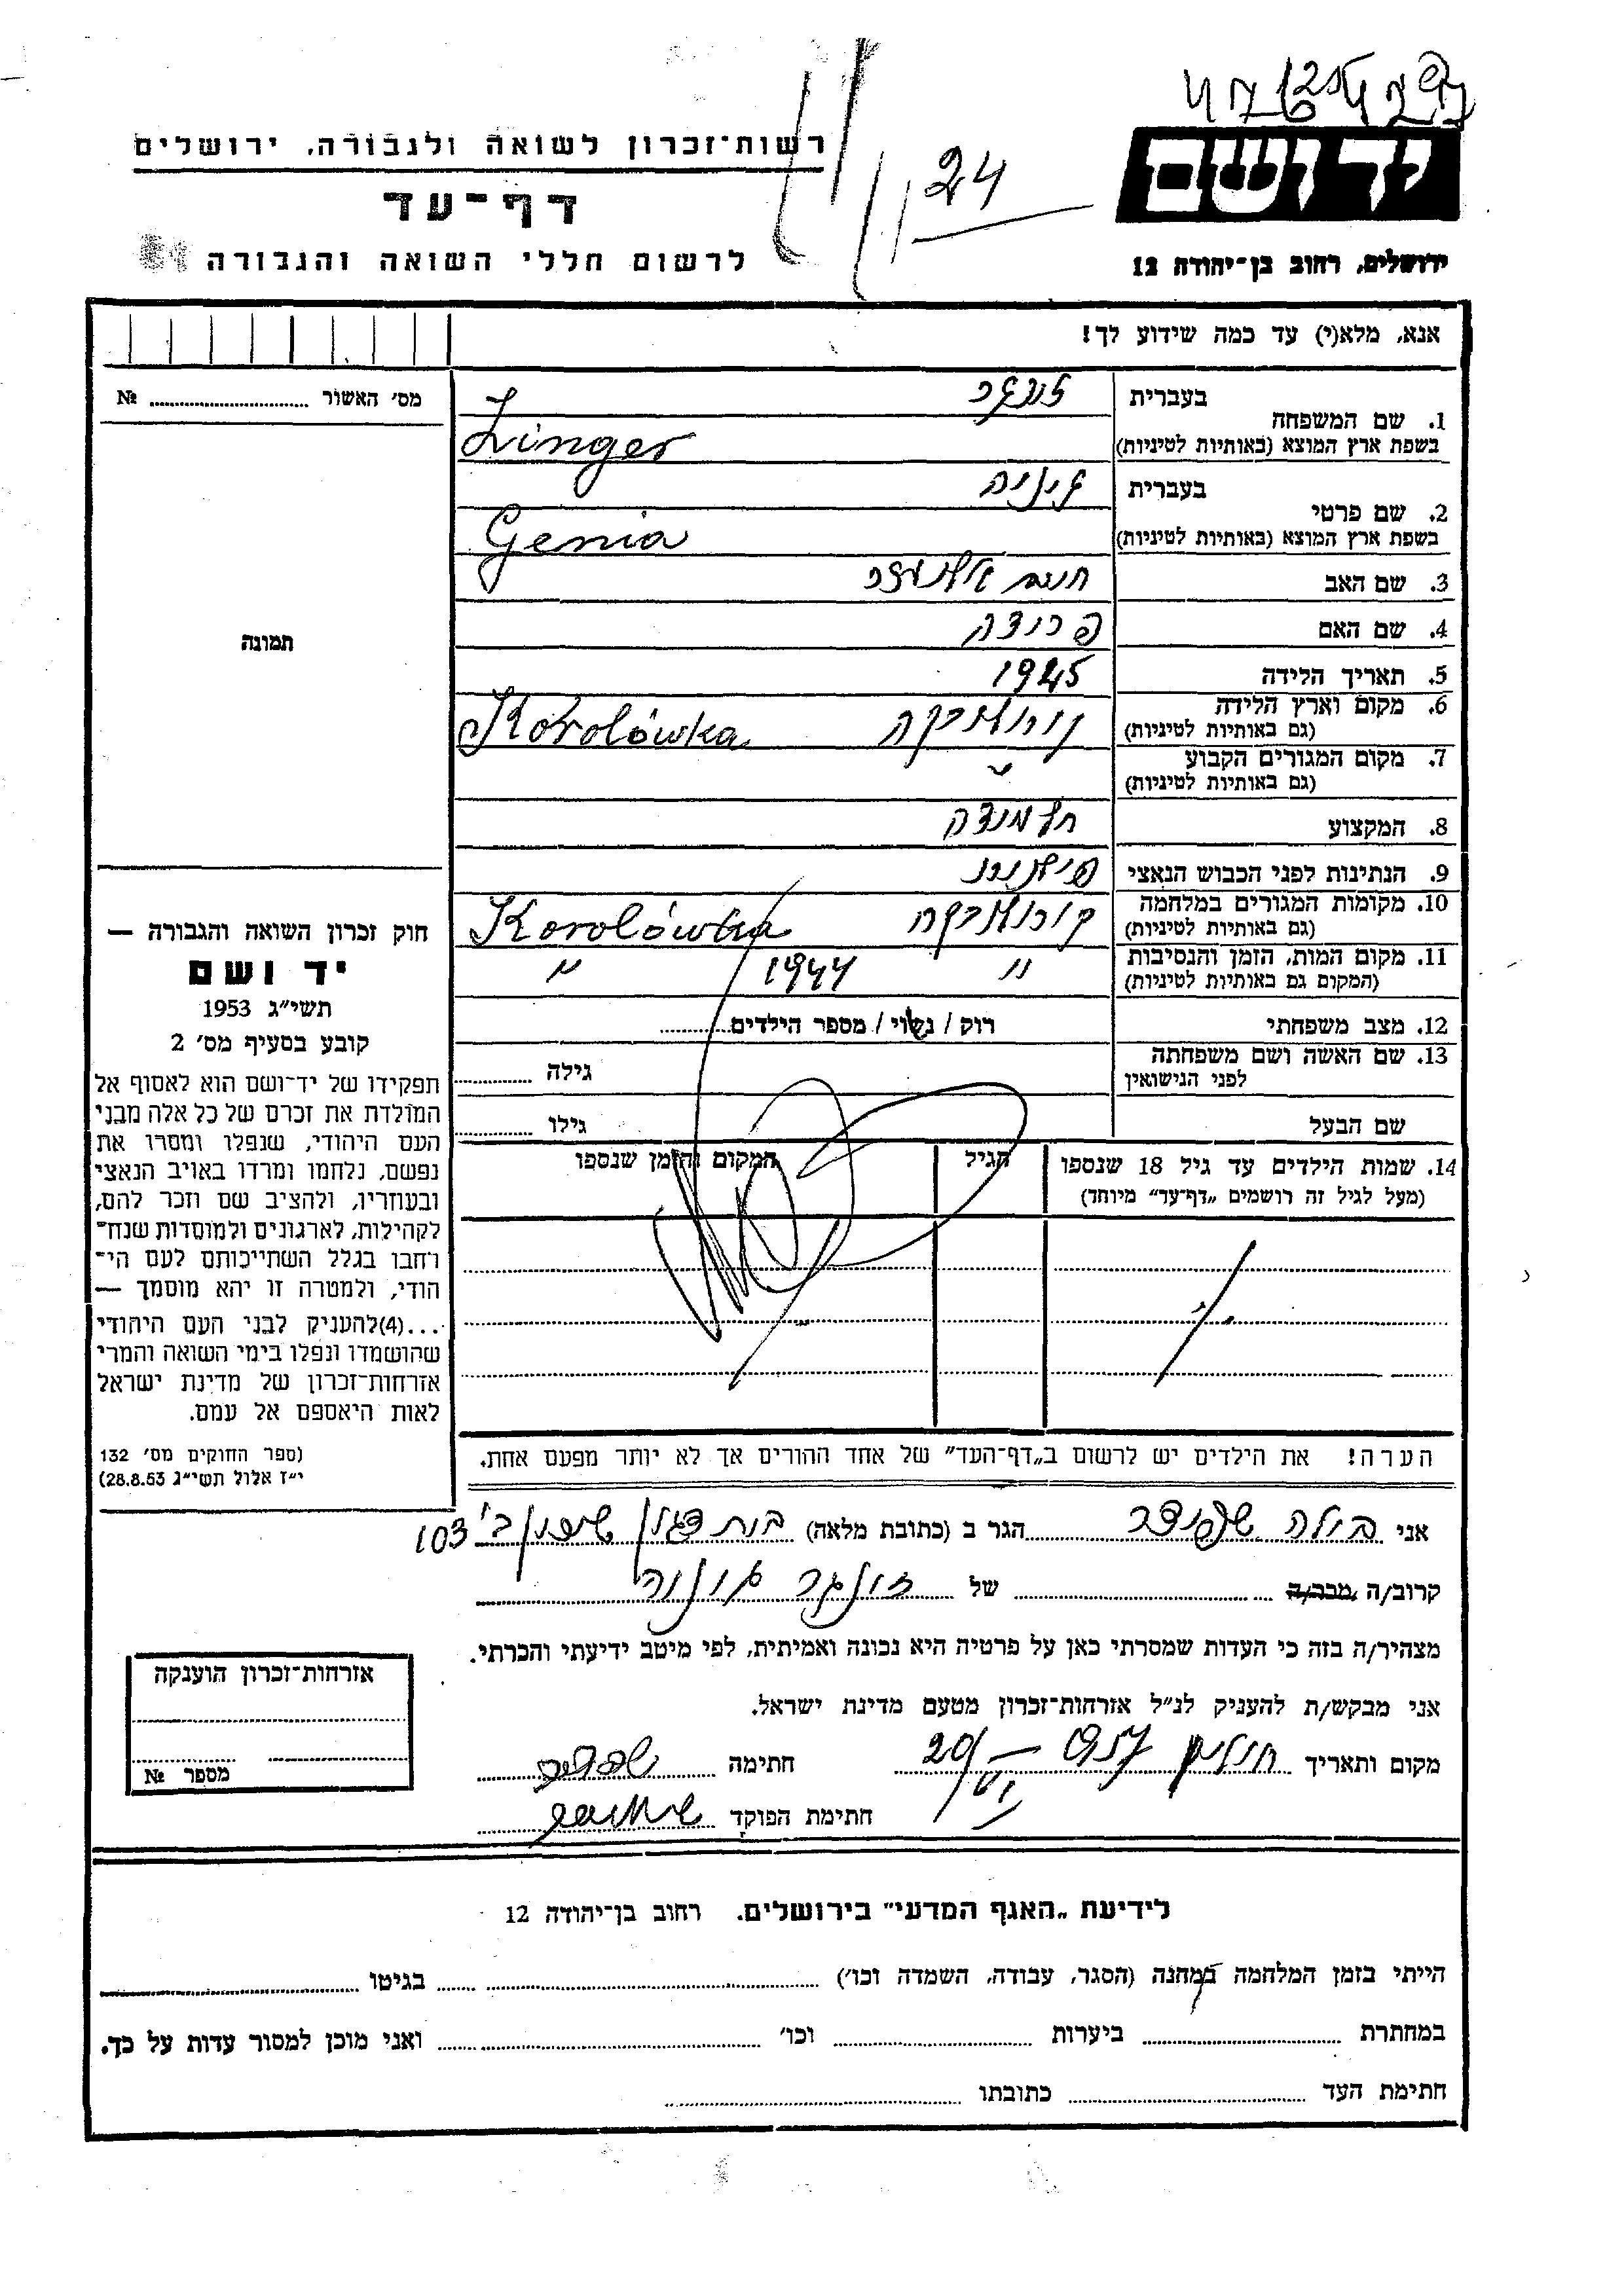 יד ושם
ירושלים, רחוב בן־יהודה 12
24
רשות־זכרון לשואה ולגבורה, ירושלים
דף־עד
לרשום חללי השואה והגבורה
אנא, מלא(י) עד כמה שידוע לך!
מס׳ האשור № 
תמונה
1. שם המשפחה
בעברית זינגר
בשפת ארץ המוצא (באותיות לטיניות) Zinger
2. שם פרטי
בעברית גיניה
בשפת ארץ המוצא (באותיות לטיניות) Genia
3. שם האב חיים
4. שם האם
5. תאריך הלידה
6. מקום וארץ הלידה קורולובקה Korolówka
(גם באותיות לטיניות)
7. מקום המגורים הקבוע "
(גם באותיות לטיניות)
8. המקצוע
9. הנתינות לפני הכבוש הנאצי
10. מקומות המגורים במלחמה קורולובקה Korolówka
(גם באותיות לטיניות)
11. מקום המות, הזמן והנסיבות " 1944 "
(המקום גם באותיות לטיניות)
12. מצב משפחתי רוק / נשוי / מספר הילדים
13. שם האשה ושם משפחתה גילה
לפני הנישואין
שם הבעל גילו
14. שמות הילדים עד גיל 18 שנספו הגיל המקום והזמן שנספו
(מעל לגיל זה רושמים „דף־עד” מיוחד)
חוק זכרון השואה והגבורה —
יד ושם
תשי״ג 1953
קובע בסעיף מס׳ 2
תפקידו של יד־ושם הוא לאסוף אל
המולדת את זכרם של כל אלה מבני
העם היהודי, שנפלו ומסרו את
נפשם, נלחמו ומרדו באויב הנאצי
ובעוזריו, ולהציב שם וזכר להם,
לקהילות, לארגונים ולמוסדות שנח־
רחבו בגלל השתייכותם לעם הי־
הודי, ולמטרה זו יהא מוסמך —
...(4)להעניק לבני העם היהודי
שהושמדו ונפלו בימי השואה והמרי
אזרחות־זכרון של מדינת ישראל
לאות היאספם אל עמם.
(ספר החוקים מס׳ 132
י״ז אלול תשי״ג 28.8.53)
הערה! את הילדים יש לרשום ב„דף־העד” של אחד ההורים אך לא יותר מפעם אחת.
אני הגר ב (כתובת מלאה) בית דגון שיכון ב' 103
קרוב/ה מכר/ה של זינגר
מצהיר/ה בזה כי העדות שמסרתי כאן על פרטיה היא נכונה ואמיתית, לפי מיטב ידיעתי והכרתי.
אני מבקש/ת להעניק לנ״ל אזרחות־זכרון מטעם מדינת ישראל.
מקום ותאריך חתימה
חתימת הפוקד
אזרחות־זכרון הוענקה
מספר №
לידיעת „האגף המדעי” בירושלים. רחוב בן־יהודה 12
הייתי בזמן המלחמה במחנה (הסגר, עבודה, השמדה וכו׳) בגיטו
במחתרת ביערות וכו׳ ואני מוכן למסור עדות על כך.
חתימת העד כתובתו